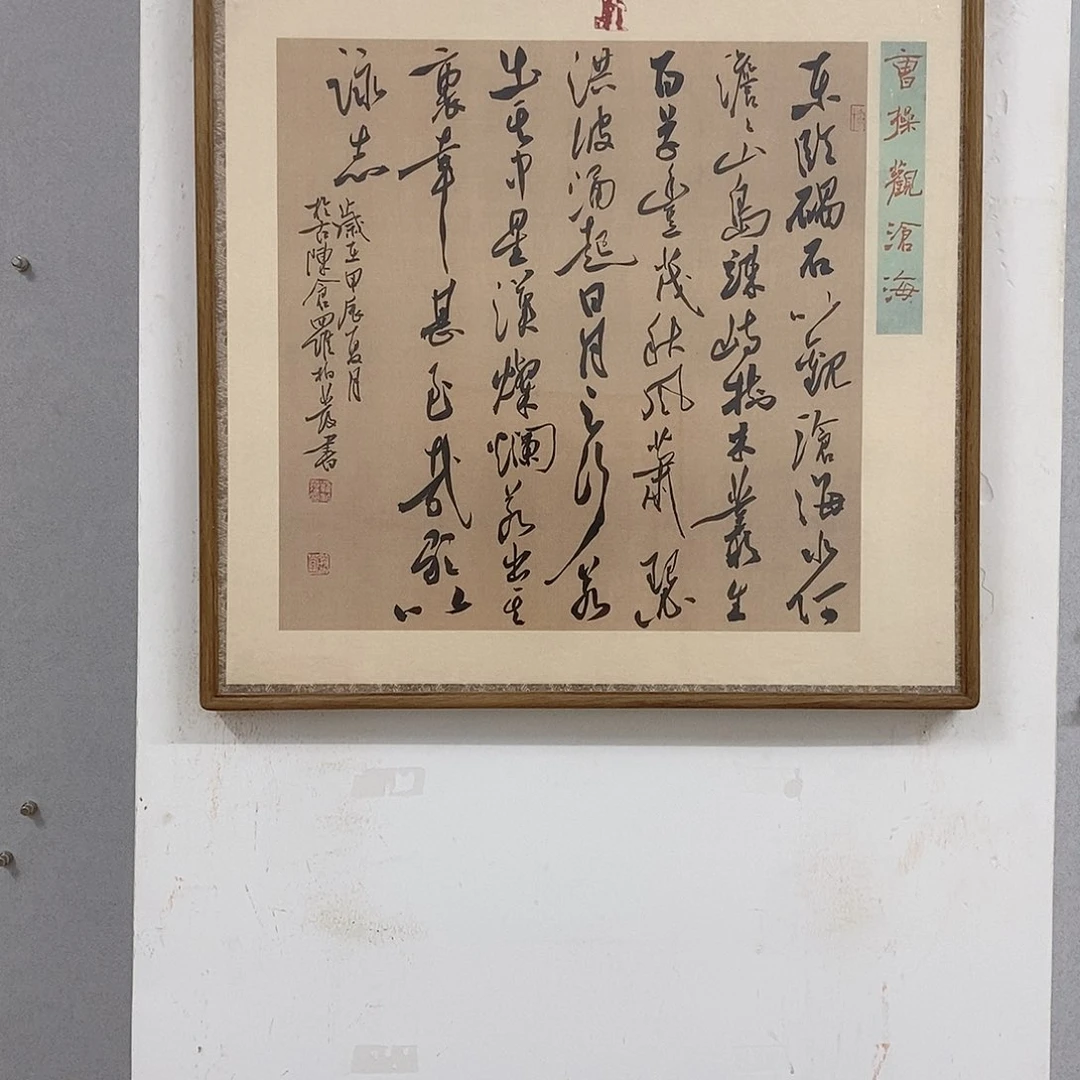 曹操觀滄海
东臨碣石以觀滄海水何
澹〻山島竦峙樹木叢生
百草豐茂秋風蕭瑟
洪波涌起日月之行若
出其中星漢燦爛若出其
裏幸甚至哉歌以
詠志
歲在甲辰夏月
於古陳倉羅柏岩書